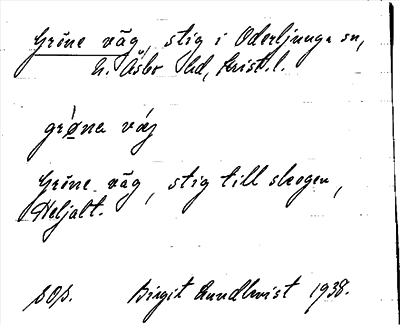 Gröne väg, stig i Oderljunga sn,
N. Åsbo hd, Krist. l.
grø̀na väg
Gröne väg, stig till skogen,
Heljalt.
SOS. Birgit Rundkvist 1938.